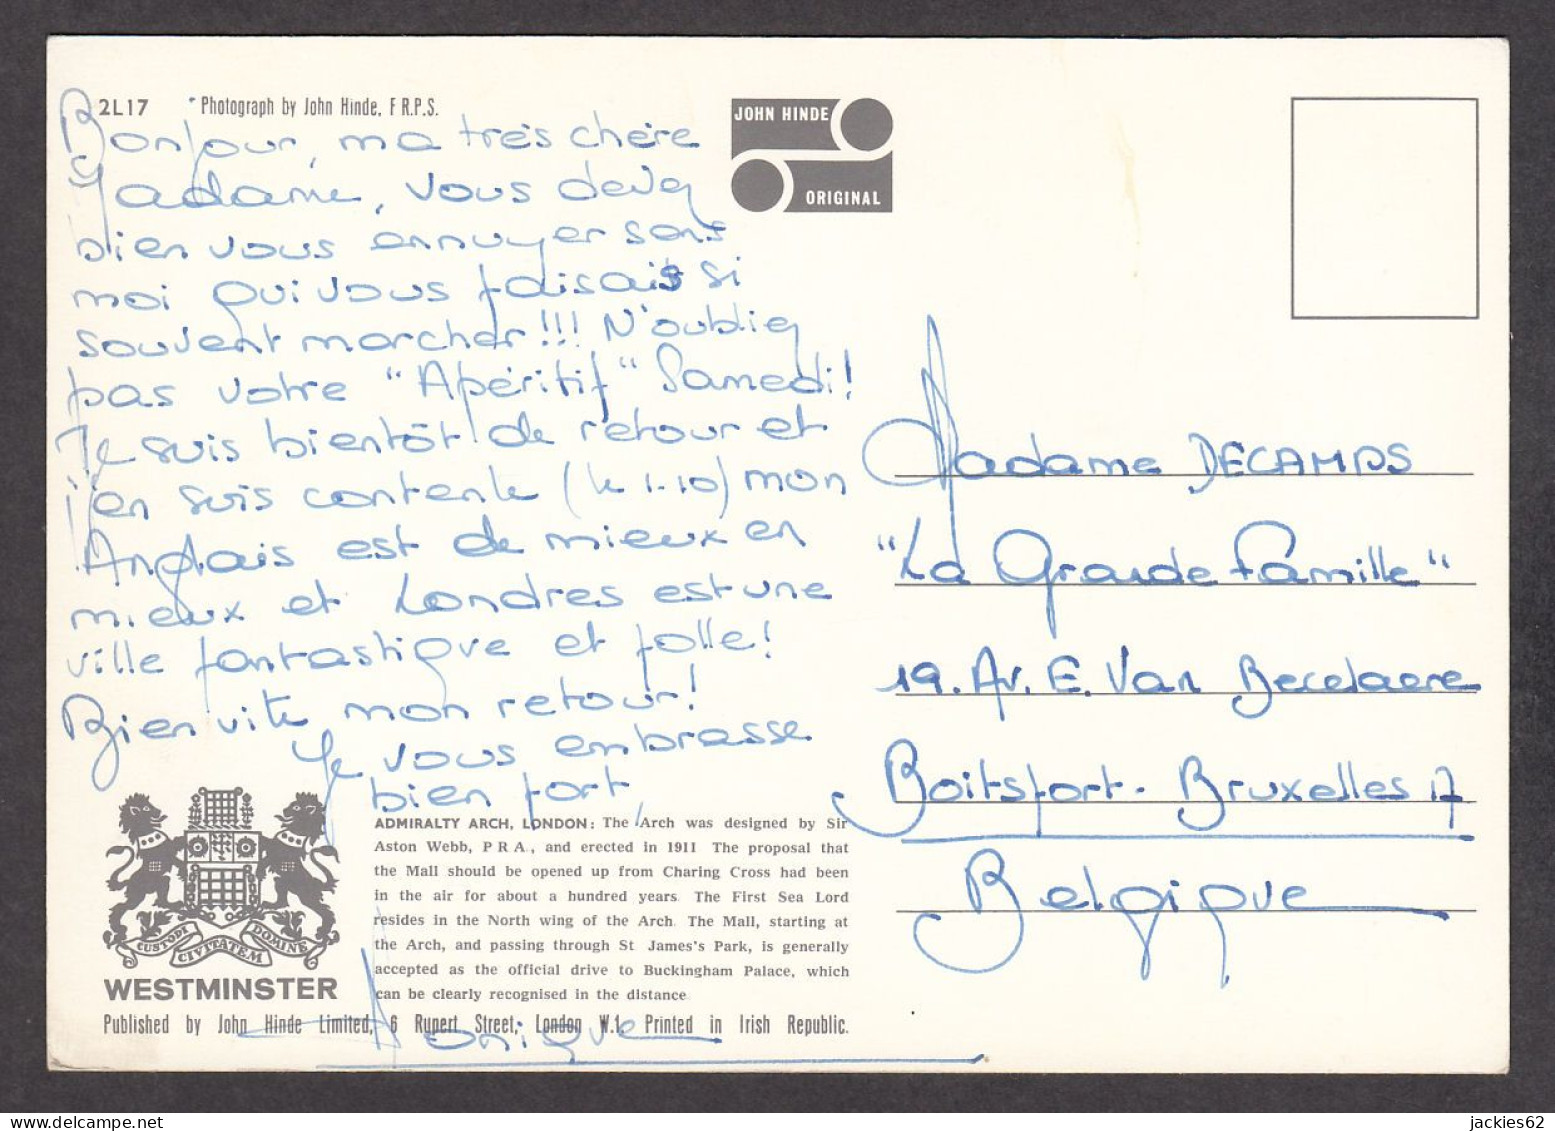 2L17 Photograph by John Hinde, F R.P.S.
JOHN HINDE
ORIGINAL
Bonjour, ma très chère
Madame, vous devez
bien vous ennuyer sans
moi qui vous faisais si
souvent marcher!!! N'oubliez
pas votre "Apéritif" Samedi!
Je suis bientôt de retour et
j'en suis contente (le 1-10) mon
Anglais est de mieux en
mieux et Londres est une
ville fantastique et folle!
Bien vite mon retour!
Je vous embrasse
bien fort,
Monique
Madame DECAMPS
"La Grande Famille"
19. Av. E. Van Becelaere
Boitsfort - Bruxelles 17
Belgique
CUSTODI CIVITATEM DOMINE
WESTMINSTER
ADMIRALTY ARCH, LONDON: The Arch was designed by Sir
Aston Webb, P R A, and erected in 1911 The proposal that
the Mall should be opened up from Charing Cross had been
in the air for about a hundred years The First Sea Lord
resides in the North wing of the Arch The Mall, starting at
the Arch, and passing through St James's Park, is generally
accepted as the official drive to Buckingham Palace, which
can be clearly recognised in the distance
Published by John Hinde Limited, 6 Rupert Street, London W.1. Printed in Irish Republic.
jackies62